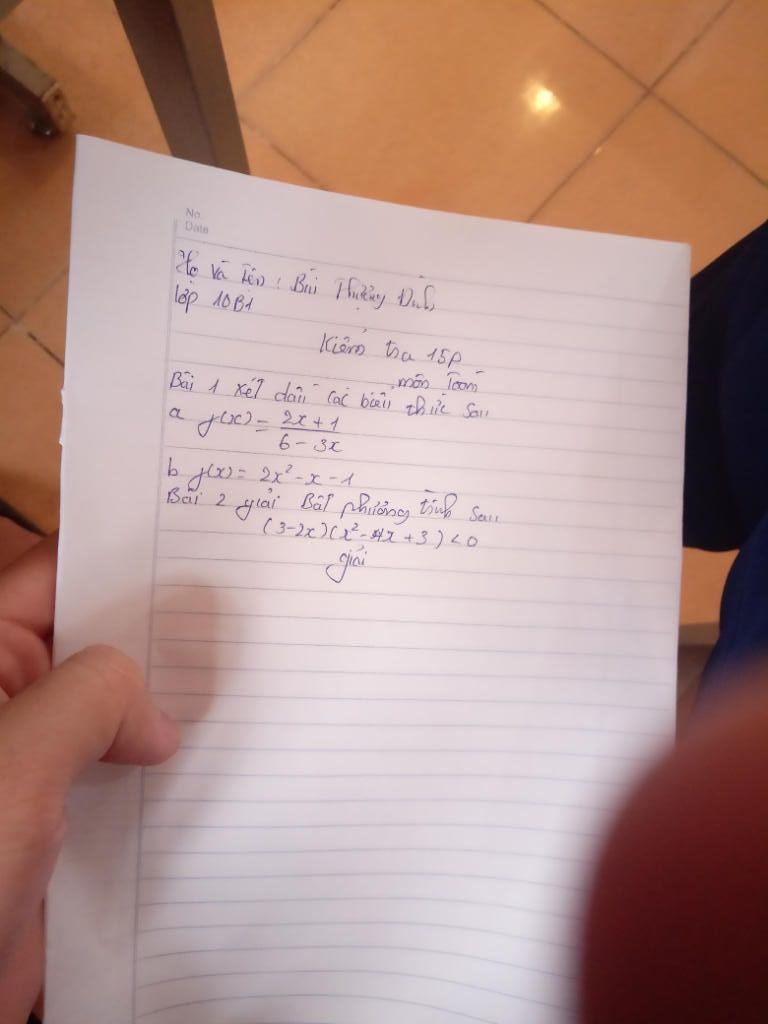 No.
Date
Họ và tên: Bùi Thượng Đỉnh
lớp 10B1
Kiểm tra 15p
môn Toán
Bài 1 xét dấu các biểu thức sau
a f(x) = 2x+1 / 6-3x
b f(x) = 2x² - x - 1
Bài 2 giải Bất phương tình sau
(3-2x)(x² - 4x + 3) < 0
giải